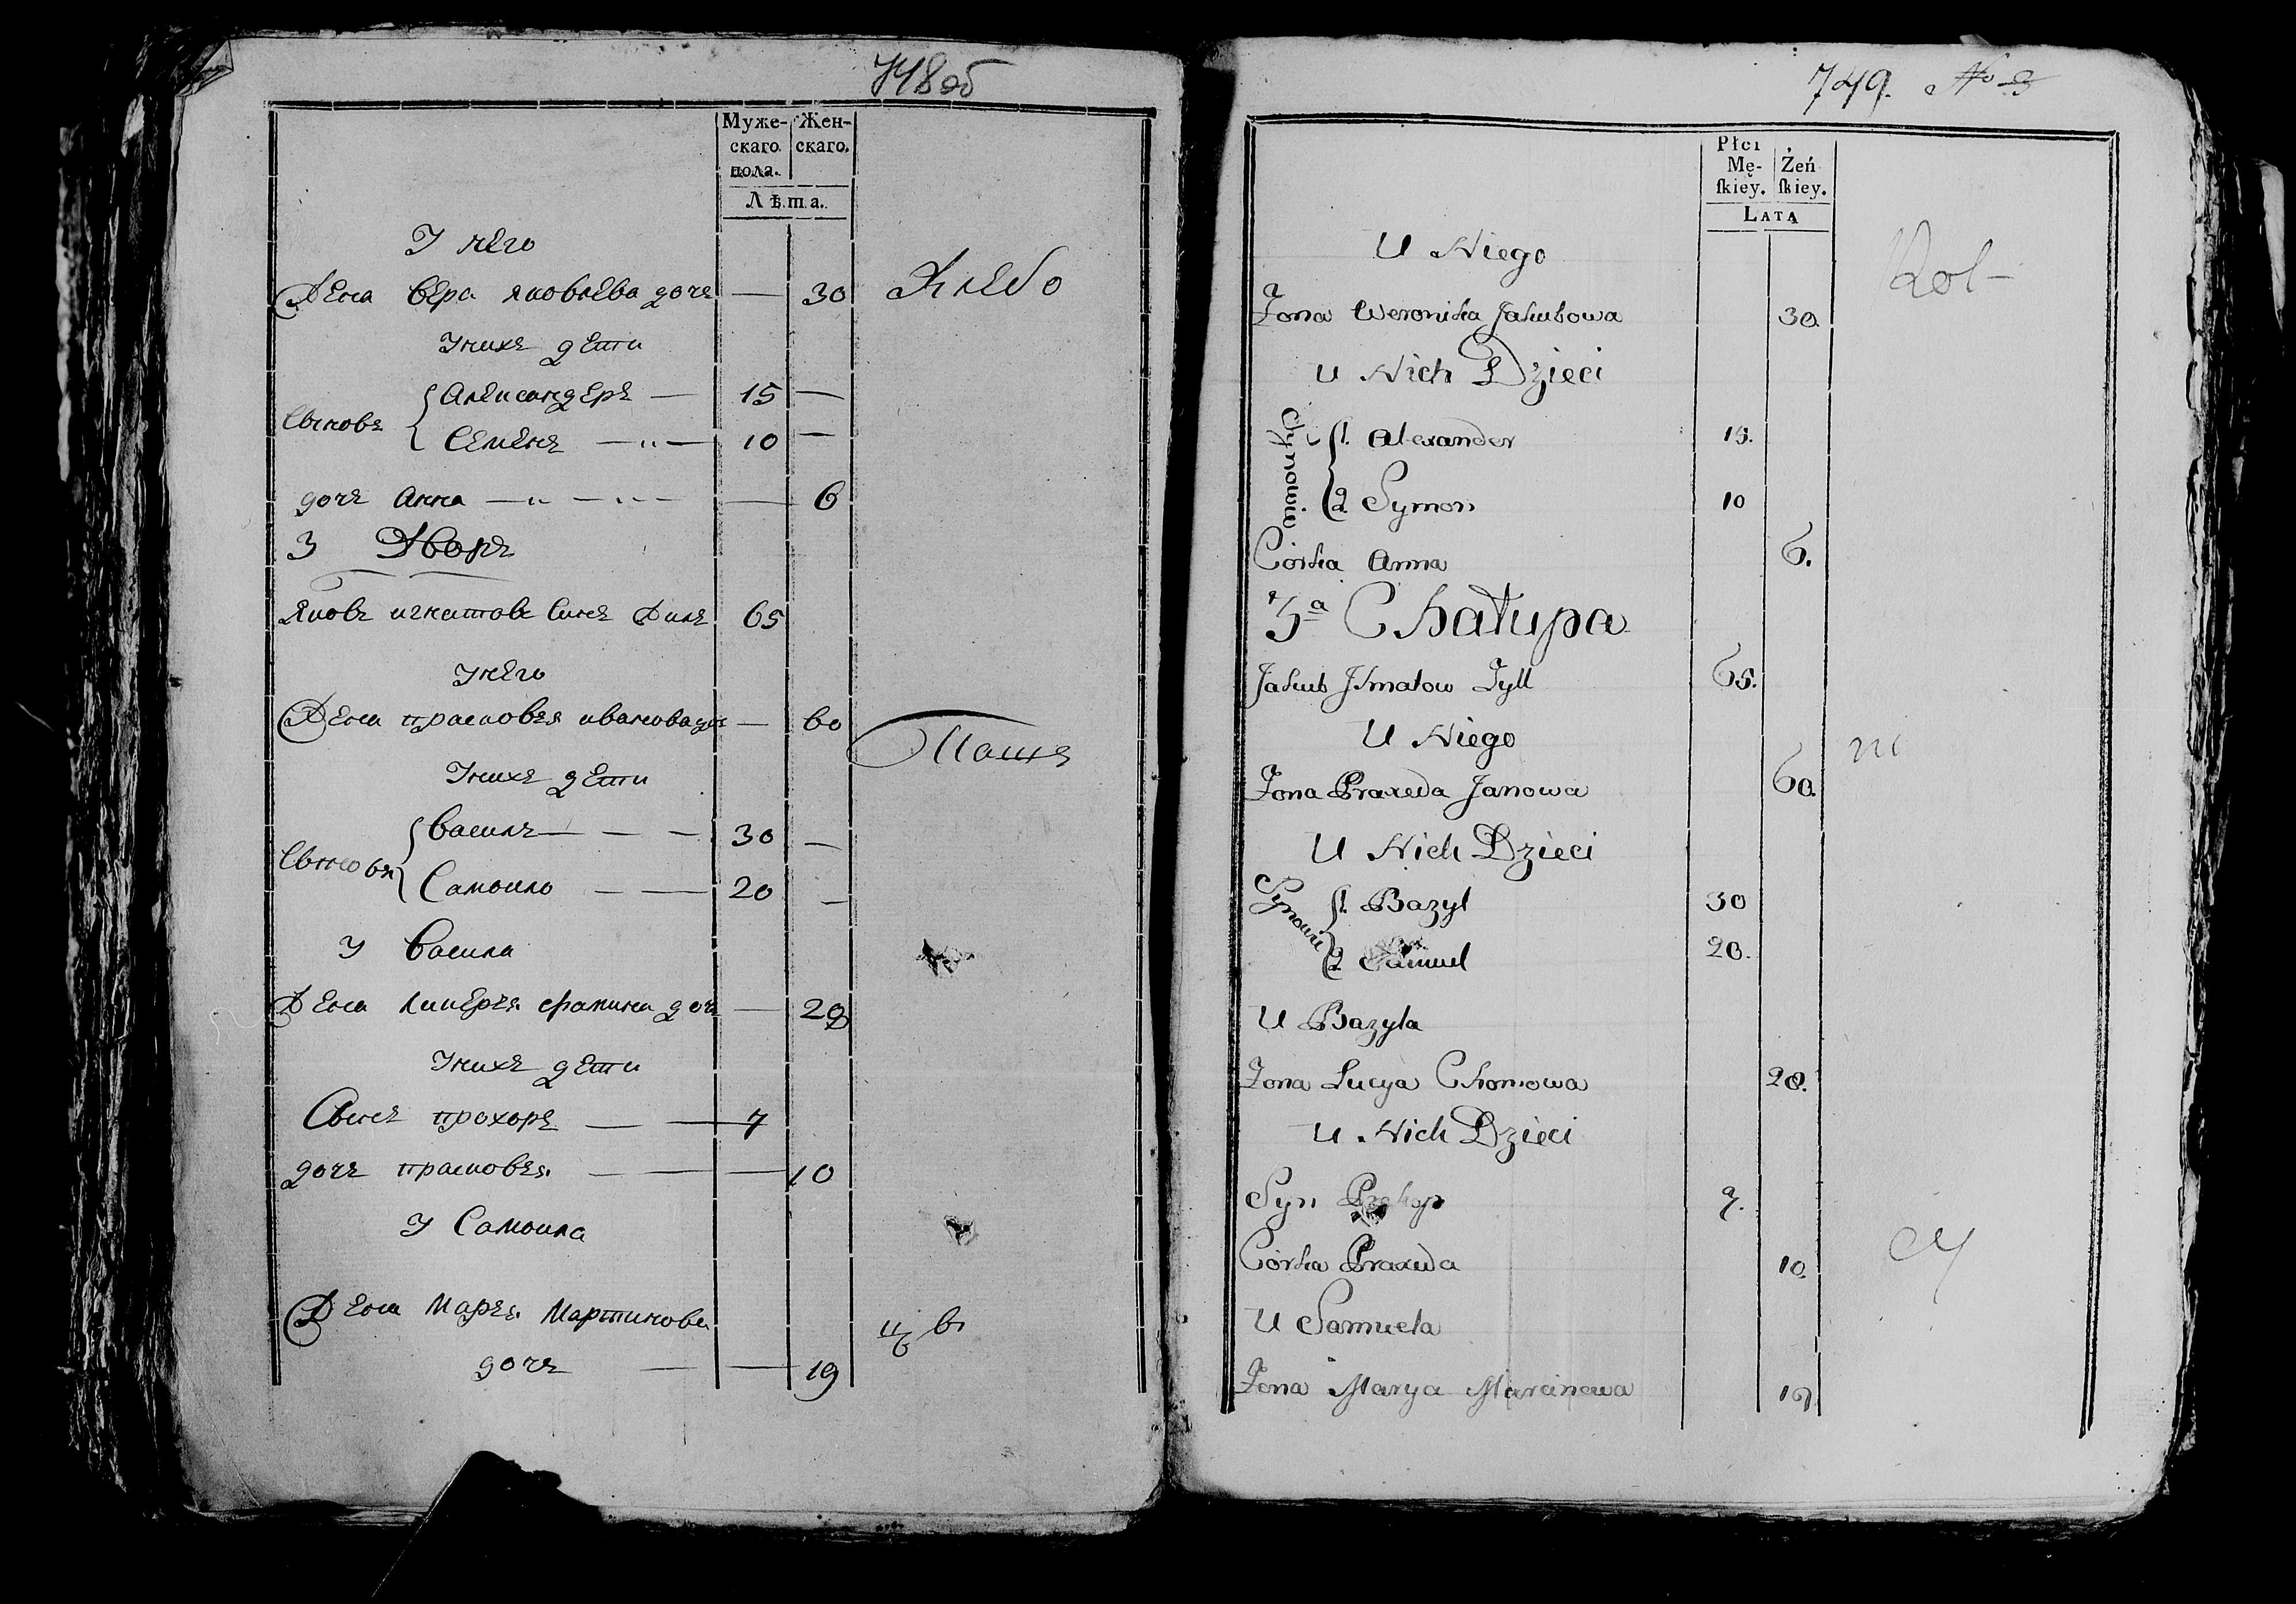 748об
Муже- Жен-
скаго скаго.
пола.
Лѣта.
У него
Жена Вера яковлева дочь — 30 Хлебо
У нихъ дети
Сыновъ Александеръ — 15 —
Семенъ — 10 —
дочь Анна — 6
3 Дворъ
Яковъ игнатовъ Сынъ Жилъ 65
У него
Жена прасковья иванова дочь — 60
Пашъ
У нихъ дети
Сыновья Василь — 30 —
Самоило — 20 —
У Василя
Жена Лукерья фомина дочь — 28
У нихъ дети
Сынъ прохоръ — 7
дочь прасковья — 10
У Самоила
Жена Марья Мартинова
дочь — 19
749. No 3
Płci
Mę- Żeń
ſkiey. ſkiey.
LATA
U Niego
Żona Weronika Jakubowa 30.
U Nich Dzieci
Synowie 1. Alexander 15.
2 Symon 10
Córka Anna 6.
3a Chałupa
Jakub Ihnatow Żyll 65.
U Niego
Żona Praxeda Janowa 60.
U Nich Dzieci
Synowie 1. Bazyl 30
2 Samuel 20.
U Bazyla
Żona Lucya Chomowa 28.
U Nich Dzieci
Syn Prokop 7.
Córka Praxeda 10.
U Samuela
Żona Marya Marcinowa 19.